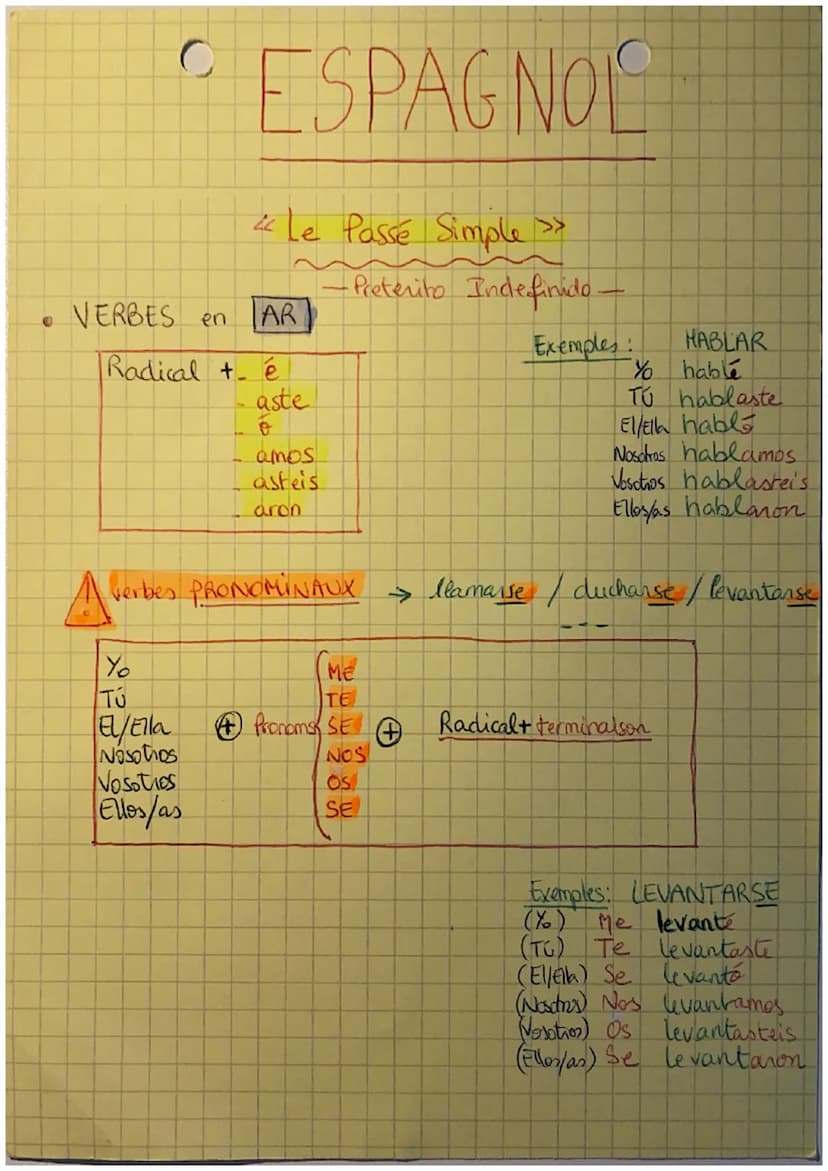 ESPAGNOL
« Le Passé Simple »
- Preterito Indefinido -
• VERBES en AR
Radical + - é
- aste
- ó
- amos
- asteis
- aron
Exemples : HABLAR
Yo hablé
Tú hablaste
El/Ella habló
Nosotros hablamos
Vosotros hablasteis
Ellos/as hablaron
! Verbes PRONOMINAUX → llamarse / ducharse / levantarse
---
Yo ME
Tú TE
El/Ella + Pronoms SE + Radical + terminaison
Nosotros NOS
Vosotros OS
Ellos/as SE
Exemples : LEVANTARSE
(Yo) Me levanté
(Tú) Te levantaste
(El/Ella) Se levantó
(Nosotros) Nos levantamos
(Vosotros) Os levantasteis
(Ellos/as) Se levantaron